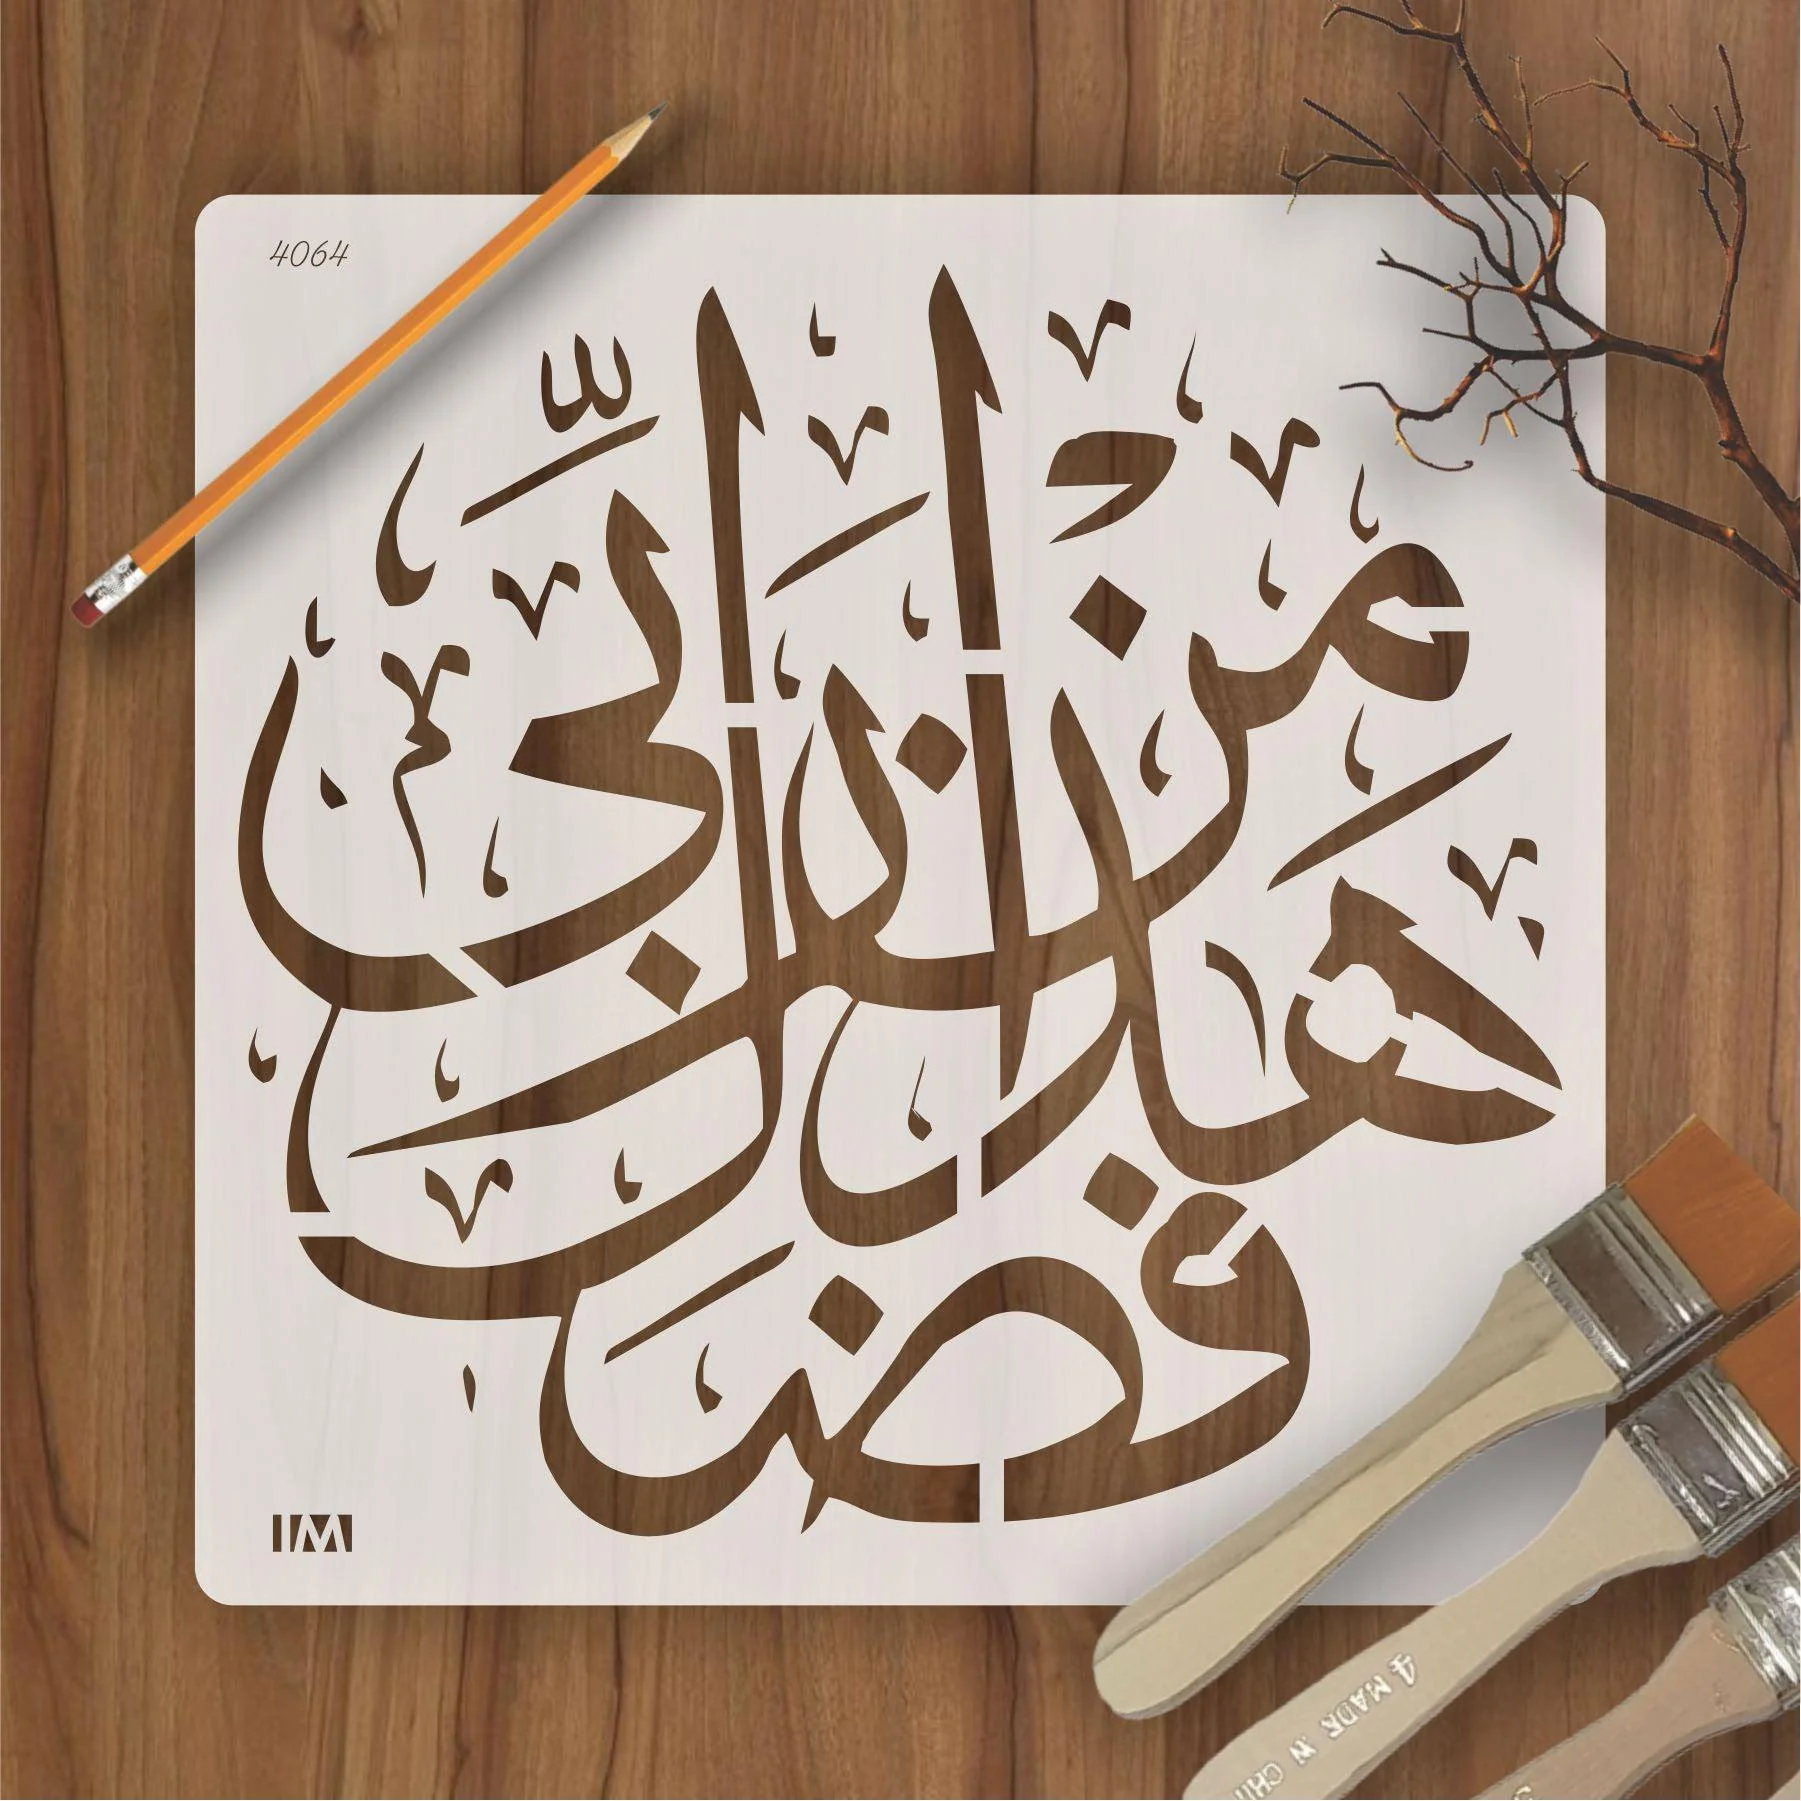 4064
هذا من فضل ربي
IM
4 MADE IN CHI